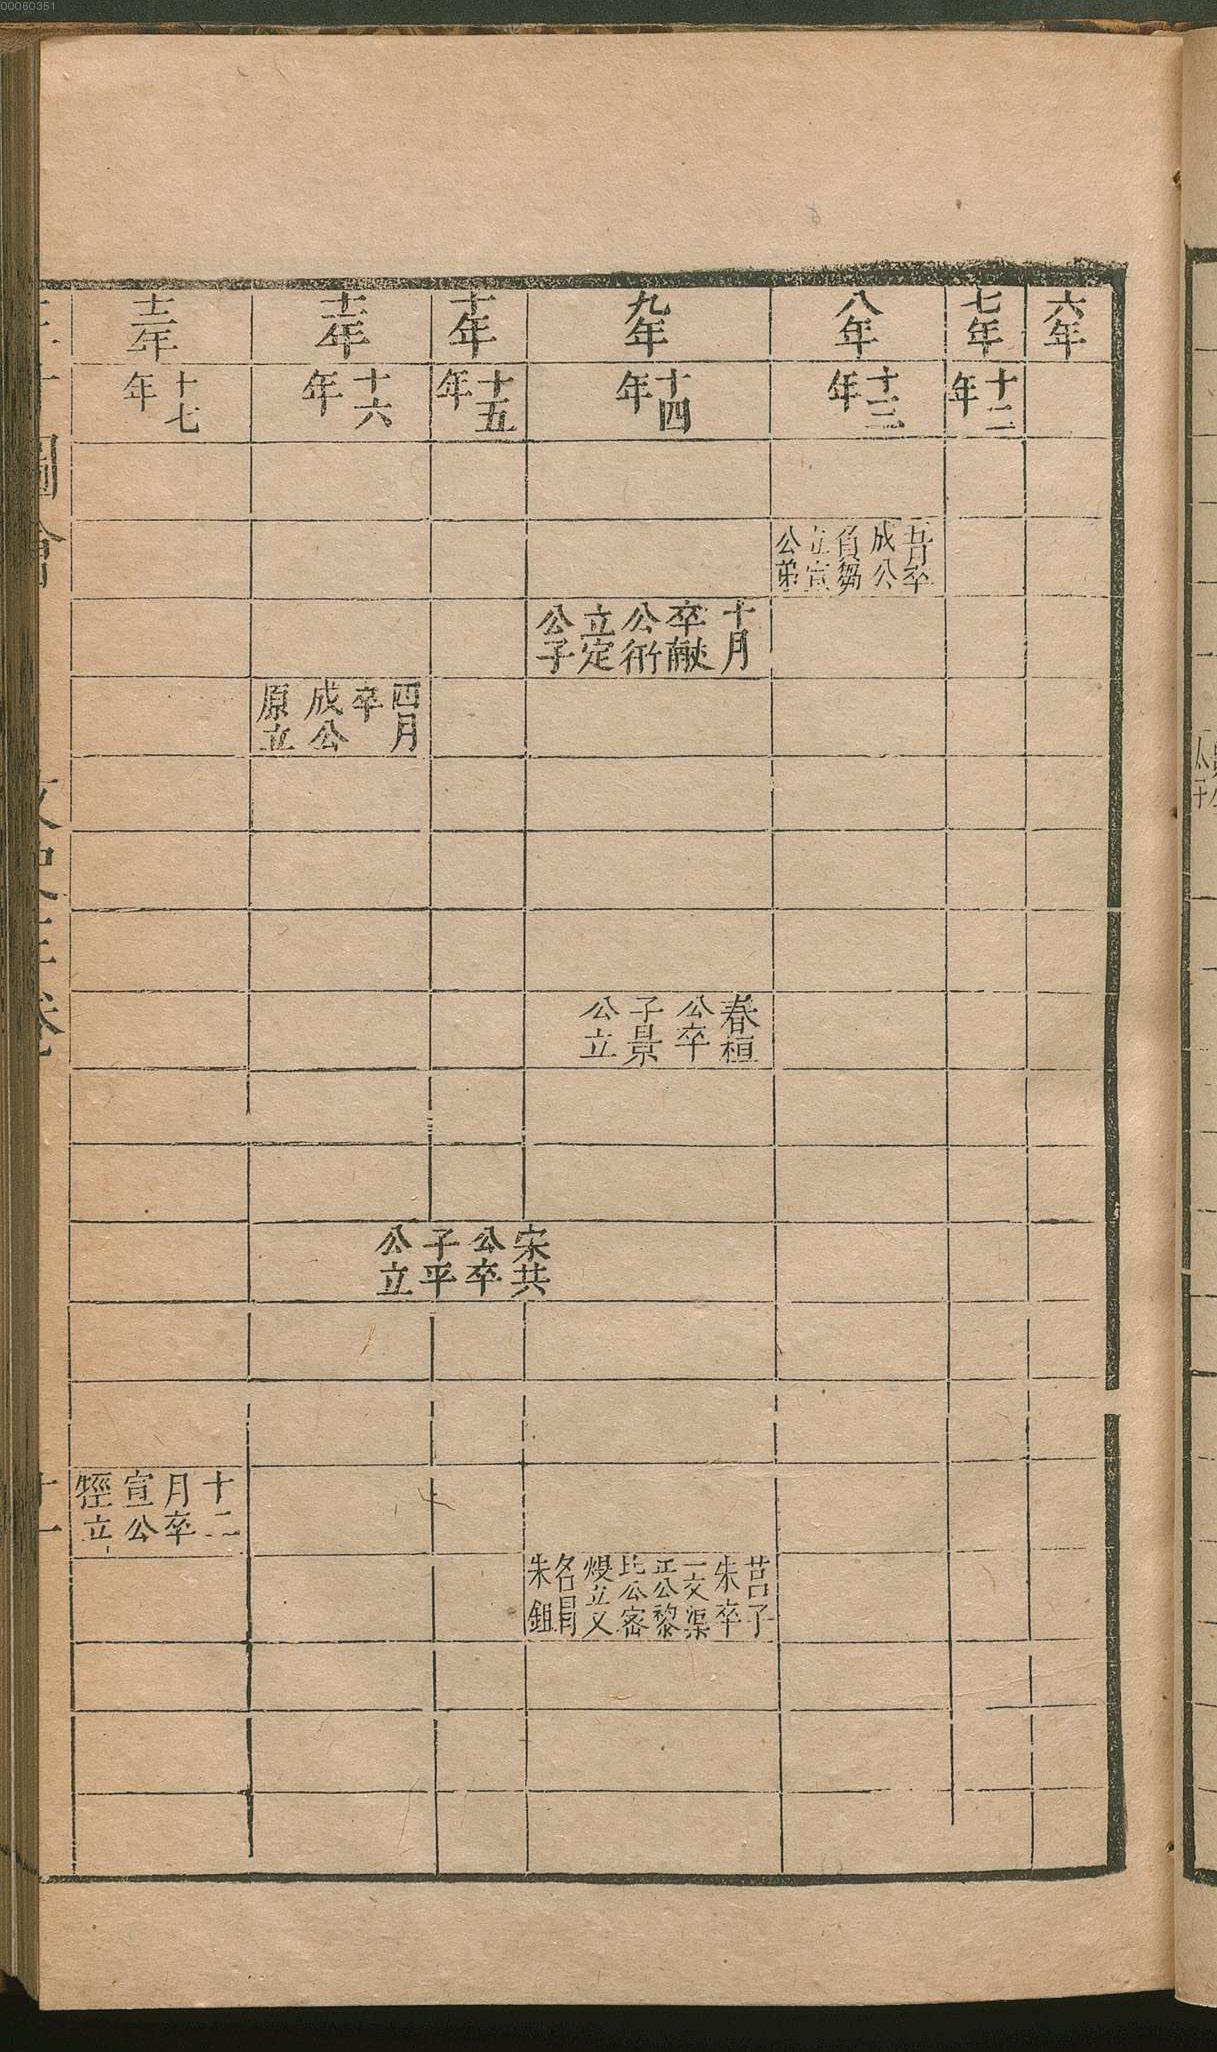 00060351
六年
七年
十二年
八年
十三年
五月卒
成公
負芻
立宣
公弟
九年
十四年
十月
卒獻
公衎
立定
公子
春桓
公卒
子景
公立
朱卒
十年
十五年
宋共
公卒
子平
公立
十一年
十六年
四月
卒
成公
原立
十二年
十七年
十二
月卒
宣公
牼立